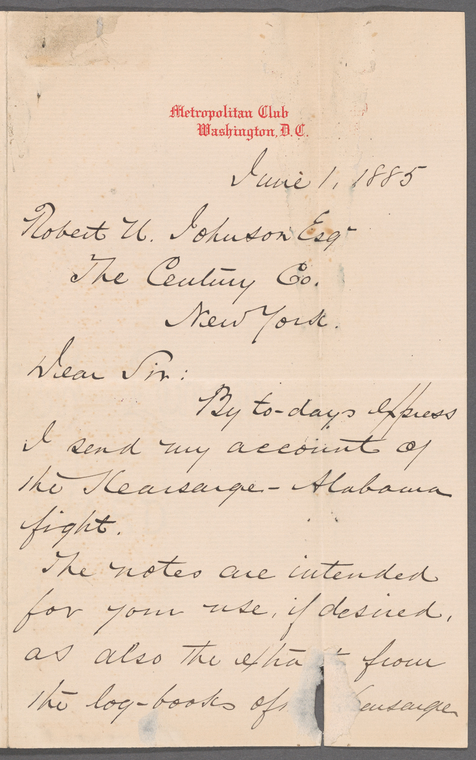 Metropolitan Club
Washington, D.C.
June 1, 1885
Robert U. Johnson Esqr
The Century Co.
New York.
Dear Sir:
By to-days express
I send my account of
the Kearsarge - Alabama
fight.
The notes are intended
for your use, if desired,
as also the from
the log-books of